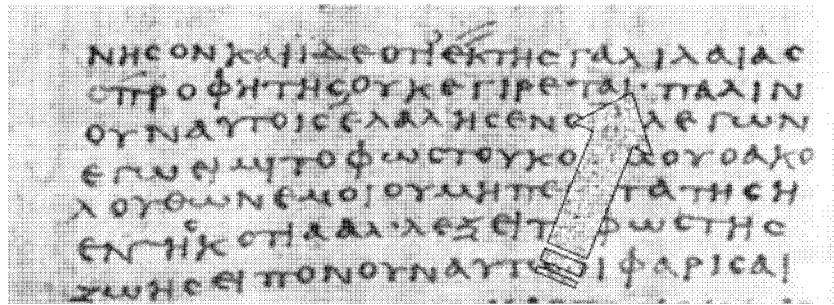 ΝΗϹΟΝΚΑΙΙΔΕΟΤΙΕΚΤΗϹΓΑΛΙΛΑΙΑϹ
ΟΠΡΟΦΗΤΗϹΟΥΚΕΓΙΡΕΤΑΙ·ΠΑΛΙΝ
ΟΥΝΑΥΤΟΙϹΕΛΑΛΗϹΕΝΟ ΛΕΓΩΝ
ΕΓΩΕΙΜΙΤΟΦΩϹΤΟΥΚΟ ΜΟΥΟΑΚΟ
ΛΟΥΘΩΝΕΜΟΙΟΥΜΗΠΕ ΤΑΤΗϹΗ
ΕΝΤΗϹΚΟΤΙΑΑΛ·ΛΕΞΕΙΤ ΦΩϹΤΗϹ
ΖΩΗϹΕΙΠΟΝΟΥΝΑΥΤΩ ΙΦΑΡΙϹΑΙ